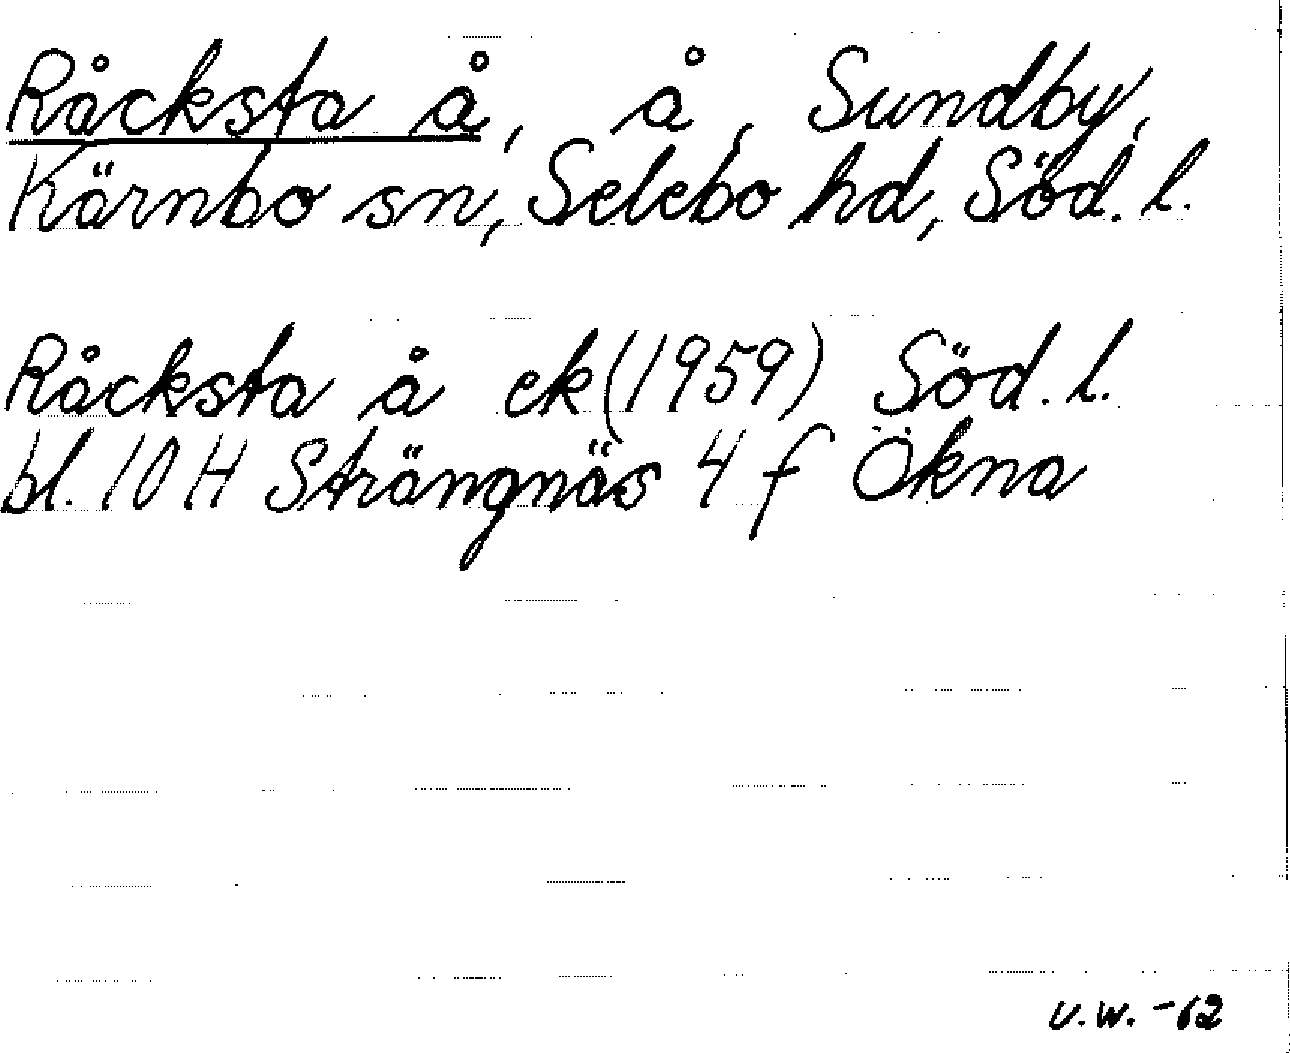 Råcksta å, å, Sundby,
Kärnbo sn, Selebo hd, Söd. l.
Råcksta å ek (1959) Söd. l.
bl. 10 H Strängnäs 4 f Ökna
U.W. -62